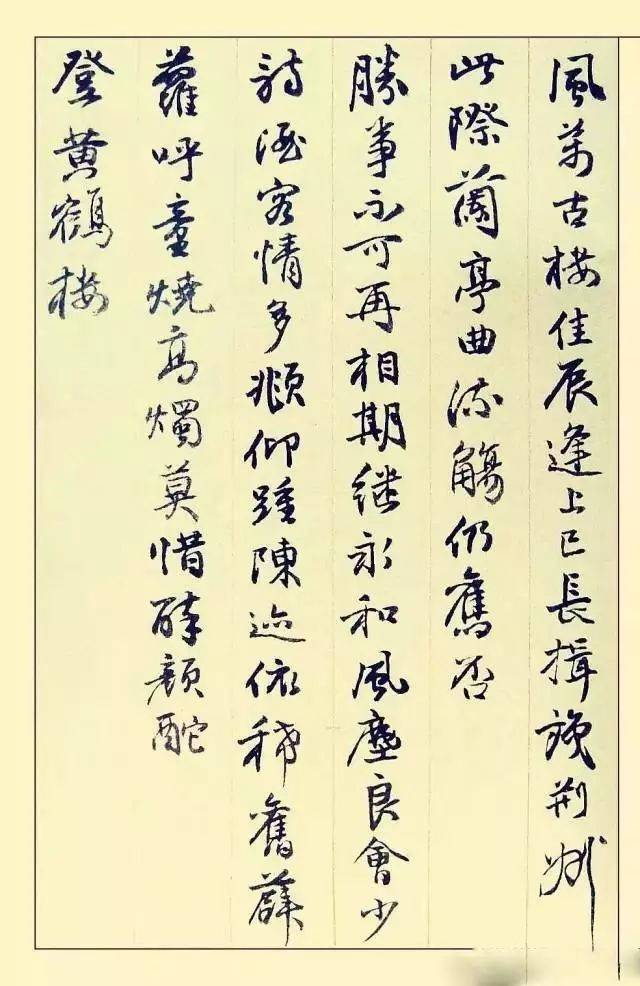 風萬古樓佳辰逢上巳長揖説荊州
此際蘭亭曲流觴仍舊否
勝事不可再相期继永和風塵良會少
詩酒客情多頫仰踵陳迹依稀舊薜
蘿呼童燒高燭莫惜醉顏酡
登黄鶴樓